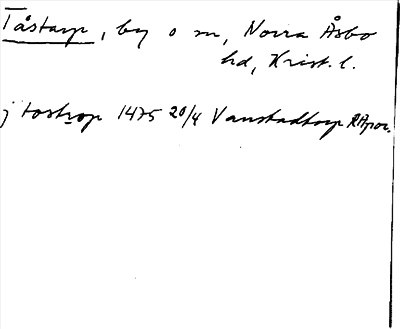 Tåstarp, by o sn, Norra Åsbo
hd, Krist. l.
j tostrop 1475 20/4 Vanstadtorp RApor.